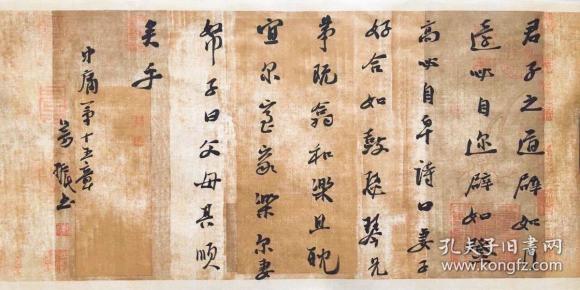 君子之道辟如行
遠必自邇辟如登
高必自卑詩曰妻子
好合如鼓瑟琴兄
弟既翕和樂且耽
宜爾室家樂爾妻
帑子曰父母其順
矣乎
中庸第十五章
孔夫子旧书网
www.kongfz.com